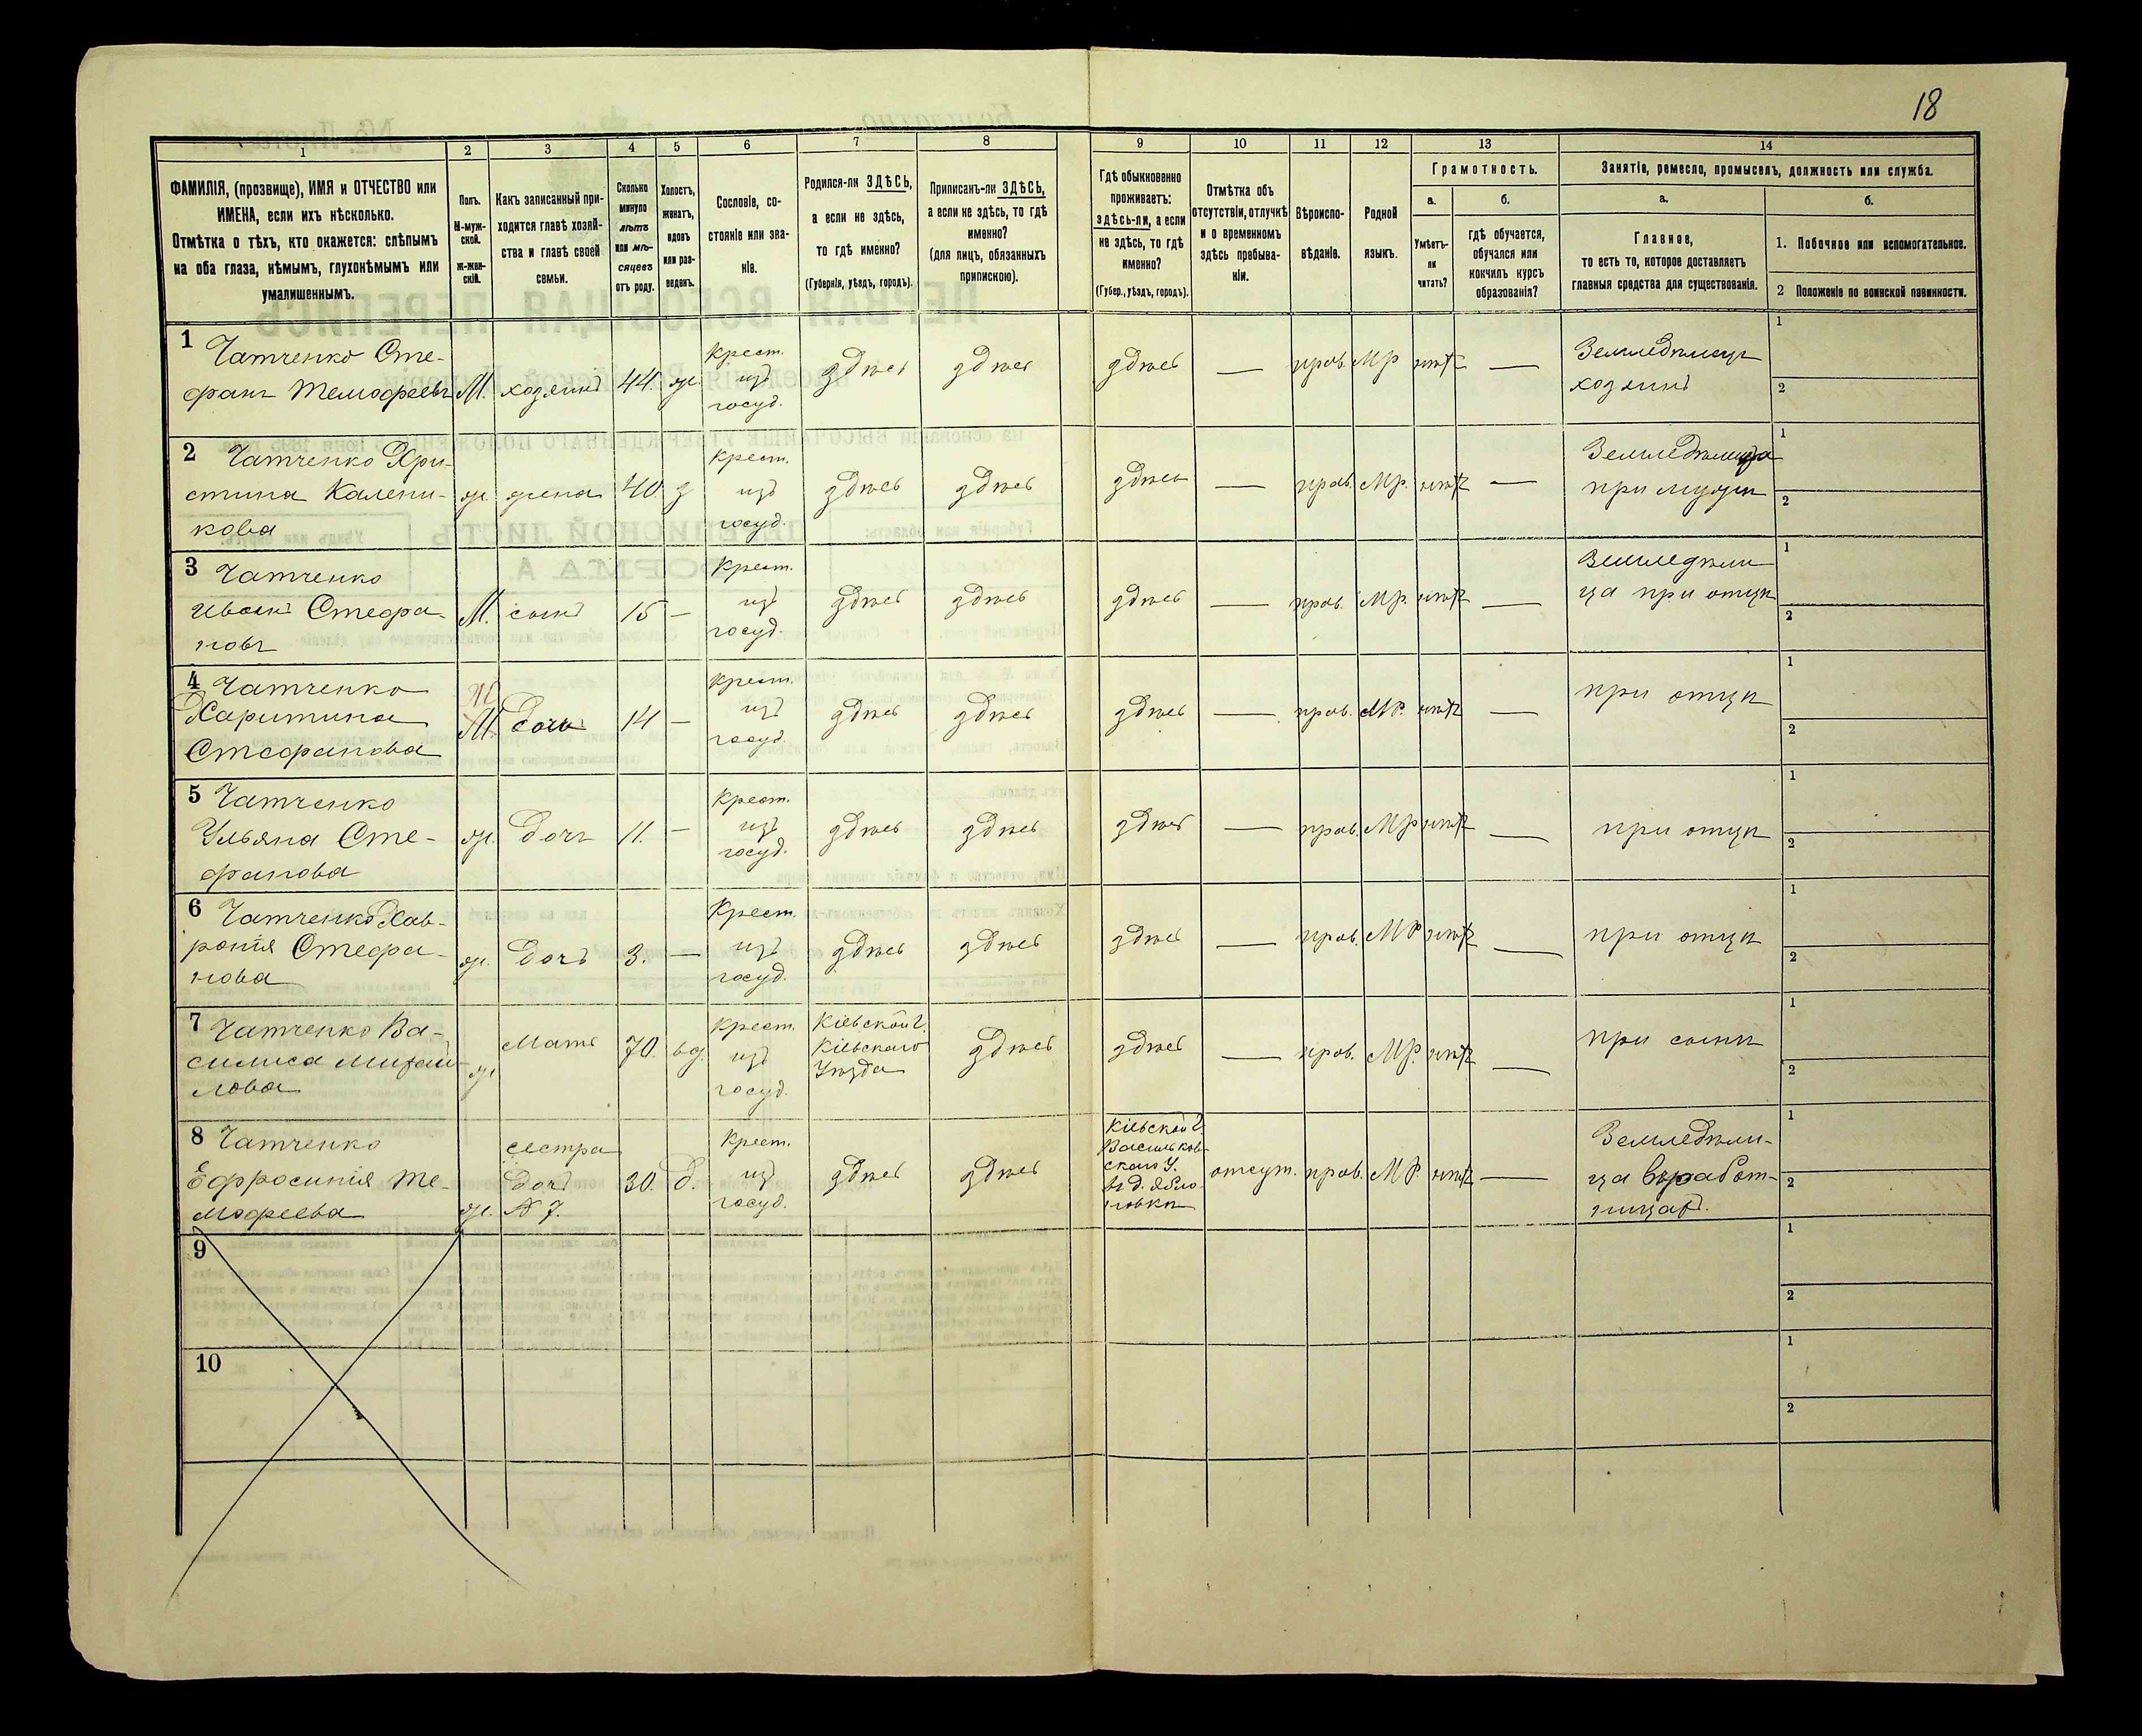 18
1
2
3
4
5
6
7
8
9
10
11
12
13
14
ФАМИЛІЯ, (прозвище), ИМЯ и ОТЧЕСТВО или
ИМЕНА, если ихъ нѣсколько.
Отмѣтка о тѣхъ, кто окажется: слѣпымъ
на оба глаза, нѣмымъ, глухонѣмымъ или
умалишеннымъ.
Полъ.
М-муж-
ской.
Ж-жен-
скій.
Какъ записанный при-
ходится главѣ хозяй-
ства и главѣ своей
семьи.
Сколько
минуло
лѣтъ
или мѣ-
сяцевъ
отъ роду.
Холостъ,
женатъ,
вдовъ
или раз-
веденъ.
Сословіе, со-
стояніе или зва-
ніе.
Родился-ли ЗДѢСЬ,
а если не здѣсь,
то гдѣ именно?
(Губернія, уѣздъ, городъ).
Приписанъ-ли ЗДѢСЬ,
а если не здѣсь, то гдѣ
именно?
(для лицъ, обязанныхъ
припискою).
Гдѣ обыкновенно
проживаетъ:
здѣсь-ли, а если
не здѣсь, то гдѣ
именно?
(Губер., уѣздъ, городъ).
Отмѣтка объ
отсутствіи, отлучкѣ
и о временномъ
здѣсь пребыва-
ніи.
Вѣроиспо-
вѣданіе.
Родной
языкъ.
Грамотность.
а.
Умѣетъ-
ли
читать?
б.
гдѣ обучается,
обучался или
кончилъ курсъ
образованія?
Занятіе, ремесло, промыселъ, должность или служба.
а.
Главное,
то есть то, которое доставляетъ
главныя средства для существованія.
б.
1. Побочное или вспомогательное.
2 Положеніе по воинской повинности.
1 Чатченко Сте-
фанъ Темофеевъ
М. хозяинъ 44. ж.
Крест.
изъ
госуд.
здѣсь здѣсь здѣсь — прав. МР нѣтъ —
Земледѣлецъ
хозяинъ
1
2
2 Чатченко Хри-
стина Калени-
кова
ж. жена 40 з
Крест.
изъ
госуд.
здѣсь здѣсь здѣсь — прав. Мр. нѣтъ —
Земледѣлица
при мужѣ
1
2
3 Чатченко
Иванъ Стефа-
новъ
М. сынъ 15 —
Крест.
изъ
госуд.
здѣсь здѣсь здѣсь — прав. Мр. нѣтъ —
Земледѣли
ца при отцѣ
1
2
4 Чатченко
Харитина
Стефанова
Ж
М. дочь 14 —
Крест.
изъ
госуд.
здѣсь здѣсь здѣсь — прав. МР. нѣтъ —
при отцѣ
1
2
5 Чатченко
Ульяна Сте-
фанова
ж. дочь 11. —
Крест.
изъ
госуд.
здѣсь здѣсь здѣсь — прав. МР нѣтъ —
при отцѣ
1
2
6 Чатченко Хав-
ронія Стефа-
нова
ж. дочь 3. —
Крест.
изъ
госуд.
здѣсь здѣсь здѣсь — прав. МР нѣтъ —
при отцѣ
1
2
7 Чатченко Ва-
силиса Михай-
лова
ж. Мать 70. вд.
Крест.
изъ
госуд.
Кіевской г.
Кіевскаго
Уѣзда
здѣсь здѣсь — прав. МР. нѣтъ —
при сынѣ
1
2
8 Чатченко
Ефросинія Те-
мофеева
ж.
сестра
дочь
№ 7.
30. д.
Крест.
изъ
госуд.
здѣсь здѣсь
Кіевской г
Васильков-
скаго У.
въ д. Ябло
новкѣ
отсут. прав. МР. нѣтъ —
Земледѣли-
ца въ работ-
ницахъ.
1
2
9
1
2
10
1
2